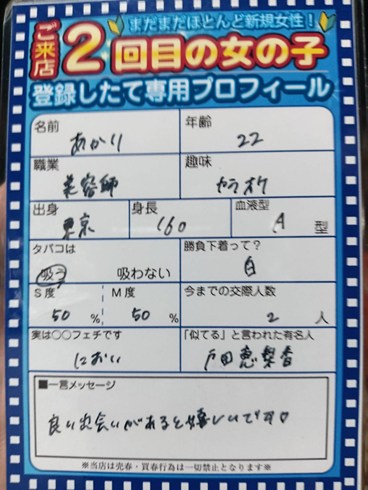 まだまだほとんど新規女性！
ご来店
2回目の女の子
登録したて専用プロフィール
名前 年齢
あかり 22
職業 趣味
美容師 カラオケ
出身 身長 血液型
東京 160 A 型
タバコは 勝負下着って？
吸う 吸わない 白
S度 M度 今までの交際人数
50% 50% 2人
実は〇〇フェチです 「似てる」と言われた有名人
におい 戸田恵梨香
■一言メッセージ
良い出会いがあると嬉しいです♡
※当店は売春・買春行為は一切禁止となります※